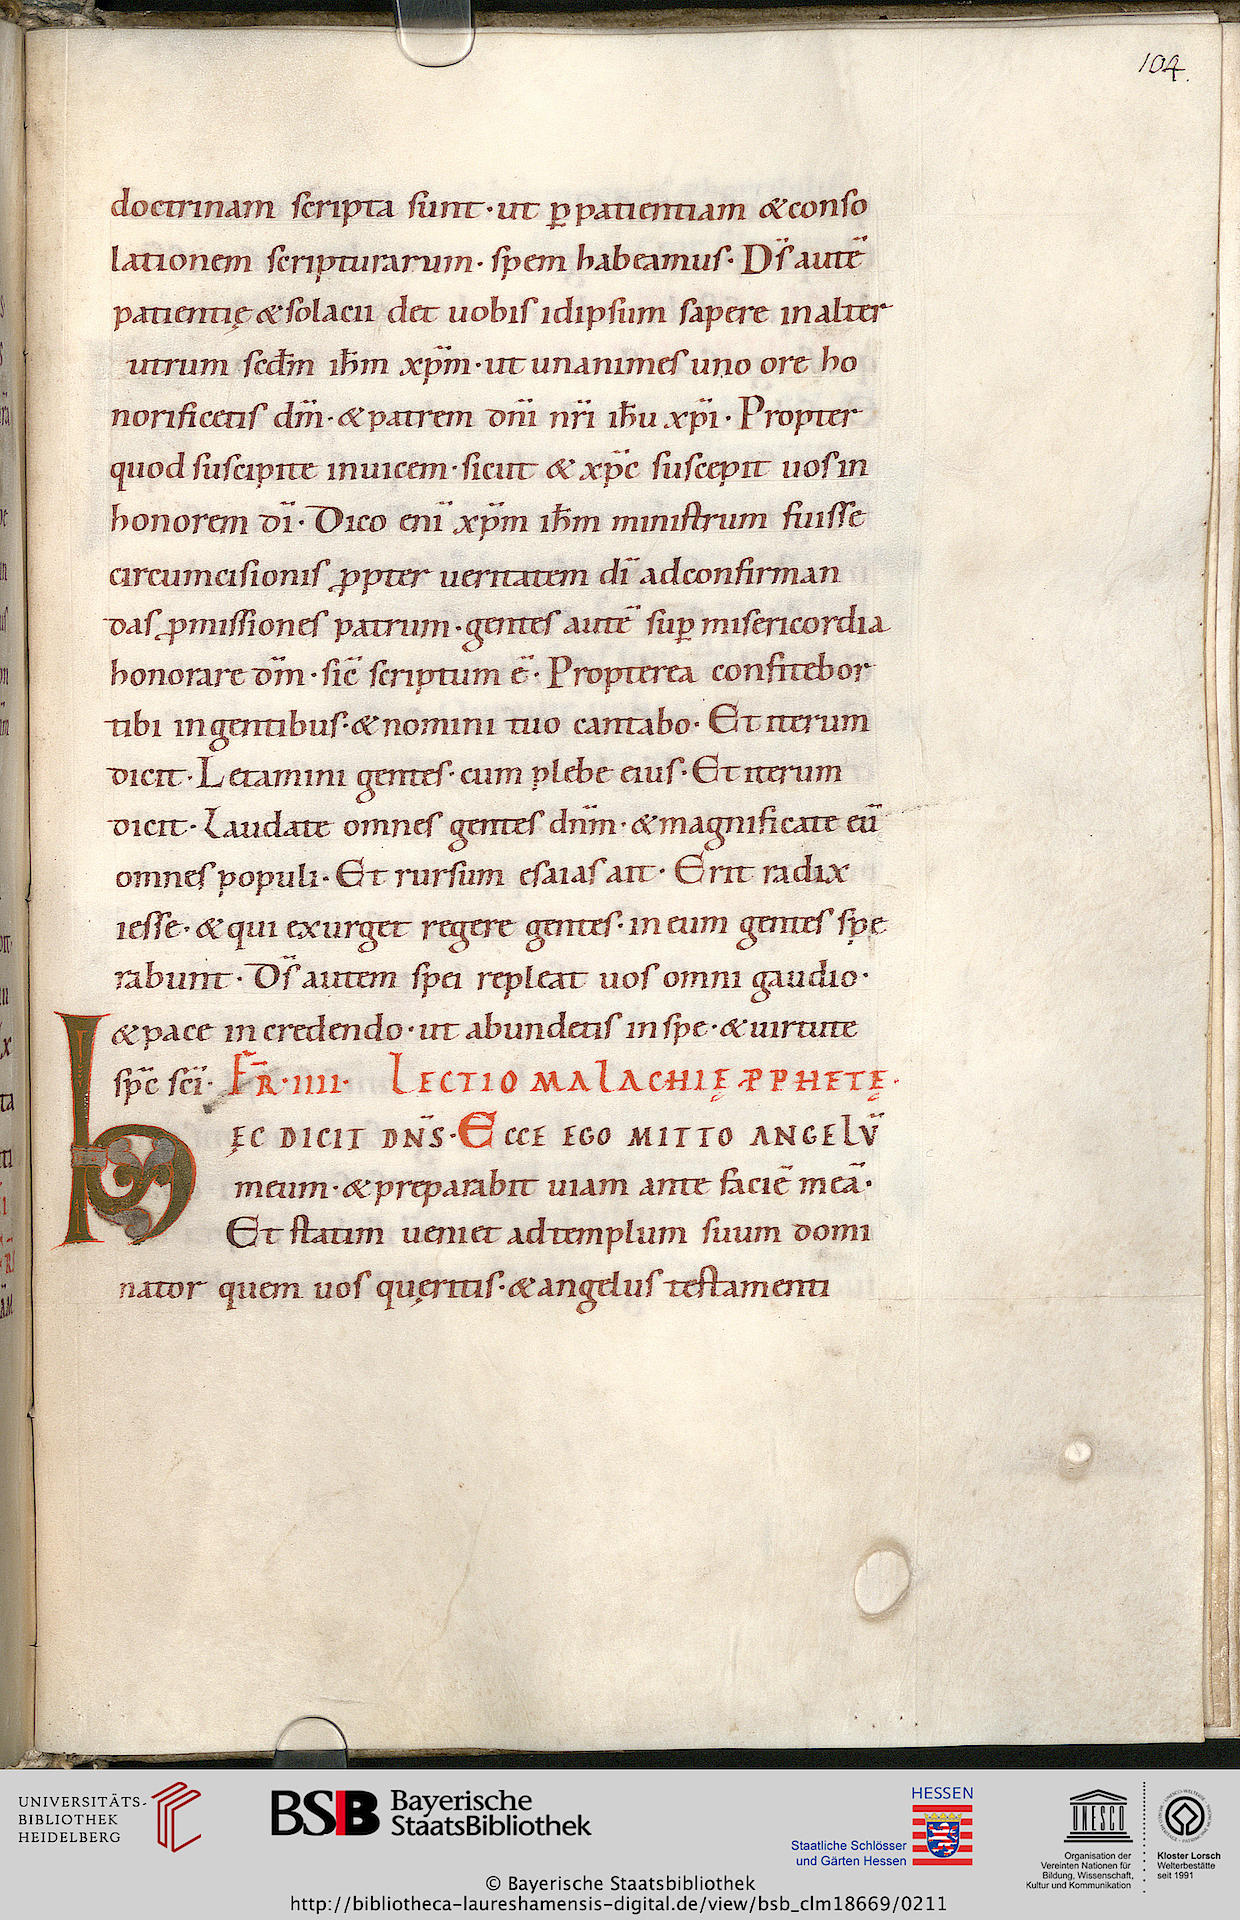 104.
doctrinam scripta sunt· ut ꝑ patientiam & conso
lationem scripturarum· spem habeamus· Ds̄ autē
patientię & solacii det uobis idipsum sapere in alter
utrum scdm̄ ih̄m xp̄m· ut unanimes uno ore ho
norificetis dm̄· & patrem dn̄i nr̄i ih̄u xp̄i· Propter
quod suscipite inuicem· sicut & xp̄c suscepit uos in
honorem dī· Dico enī xp̄m ih̄m ministrum fuisse
circumcisionis ꝓpter ueritatem dī ad confirman
das ꝓmissiones patrum· gentes autē suꝑ misericordia
honorare dm̄· sic̄ scriptum ē· Propterea confitebor
tibi in gentibus· & nomini tuo cantabo· Et iterum
dicit· Letamini gentes· cum plebe eius· Et iterum
dicit· Laudate omnes gentes dnm̄· & magnificate eū
omnes populi· Et rursum esaias ait· Erit radix
iesse· & qui exurget regere gentes· in eum gentes spe
rabunt· Ds̄ autem spei repleat uos omni gaudio·
& pace in credendo· ut abundetis in spe· & uirtute
sp̄c sc̄i· FR̄· IIII· LECTIO MALACHIĘ PPHETĘ·
hĘC DICIT DN̄S· ECCE EGO MITTO ANGELV̄
meum· & preparabit uiam ante faciē meā·
Et statim ueniet ad templum suum domi
nator quem uos quęritis· & angelus testamenti
UNIVERSITÄTS-
BIBLIOTHEK
HEIDELBERG
BSB Bayerische
StaatsBibliothek
HESSEN
Staatliche Schlösser
und Gärten Hessen
UNESCO
Organisation der
Vereinten Nationen für
Bildung, Wissenschaft,
Kultur und Kommunikation
Kloster Lorsch
Welterbestätte
seit 1991
© Bayerische Staatsbibliothek
http://bibliotheca-laureshamensis-digital.de/view/bsb_clm18669/0211